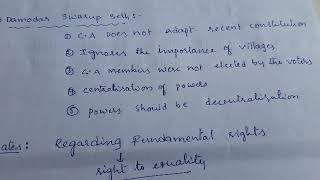 Damodar Swarup Seth:-
① C.A Does not adapt recent constitution
② Ignores the importance of villages
③ C.A members were not elected by the voters
④ centralisation of powers
⑤ powers should be decentralisation
ates: Regarding Fundamental rights
↓
right to equality